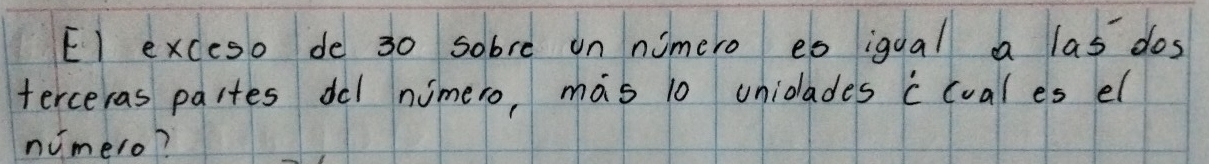 El exceso de 30 sobre un número es igual a las dos
terceras partes del número, más 10 unidades ¿ cual es el
número?